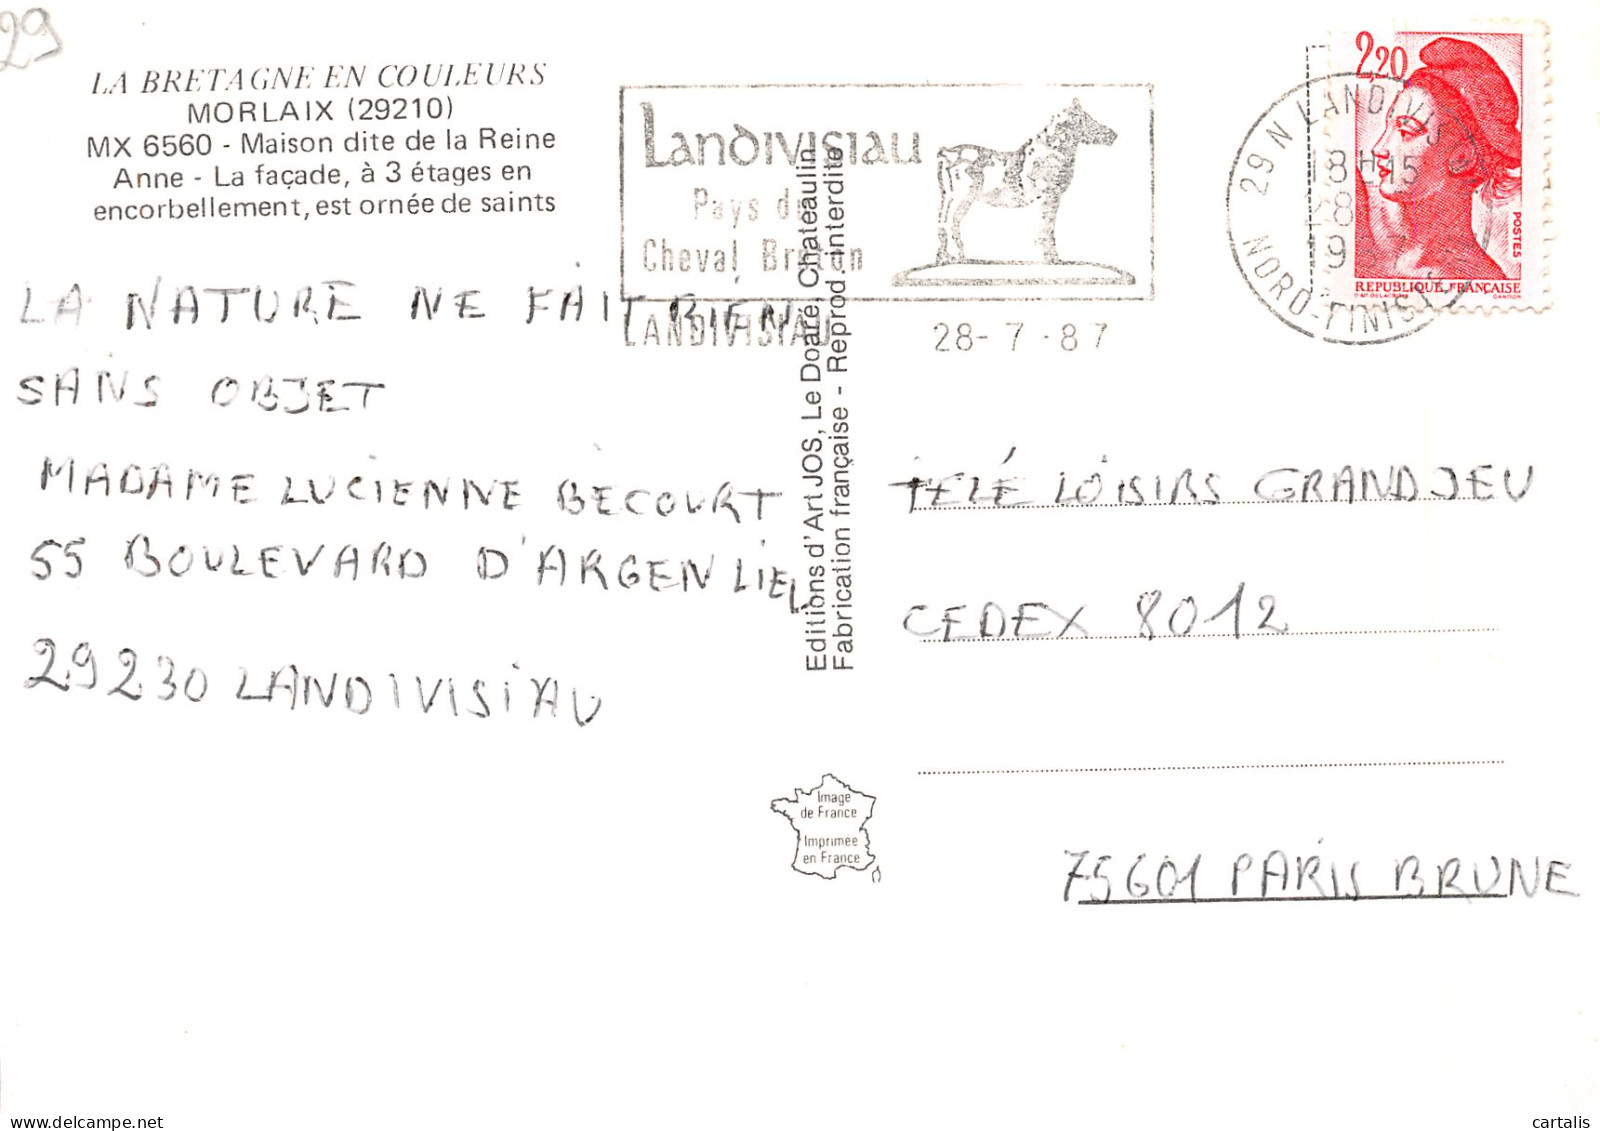 29
LA BRETAGNE EN COULEURS
MORLAIX (29210)
MX 6560 - Maison dite de la Reine
Anne - La façade, à 3 étages en
encorbellement, est ornée de saints
LANDIVISIAU
Pays du
Cheval Breton
LANDIVISIAU
28-7-87
2,20
POSTES
REPUBLIQUE FRANÇAISE
GANDON
29 N LANDIVISIAU
18H15
28
NORD-FINIST
LA NATURE NE FAIT RIEN
SANS OBJET
MADAME LUCIENNE BECOURT
55 BOULEVARD D'ARGENLIEU
29230 LANDIVISIAU
Editions d'Art JOS, Le Doaré, Chateaulin
Fabrication française - Reprod. interdite
TELÉ LOISIRS GRAND JEU
CEDEX 8012
75601 PARIS BRUNE
Image
de France
Imprimée
en France
cartalis